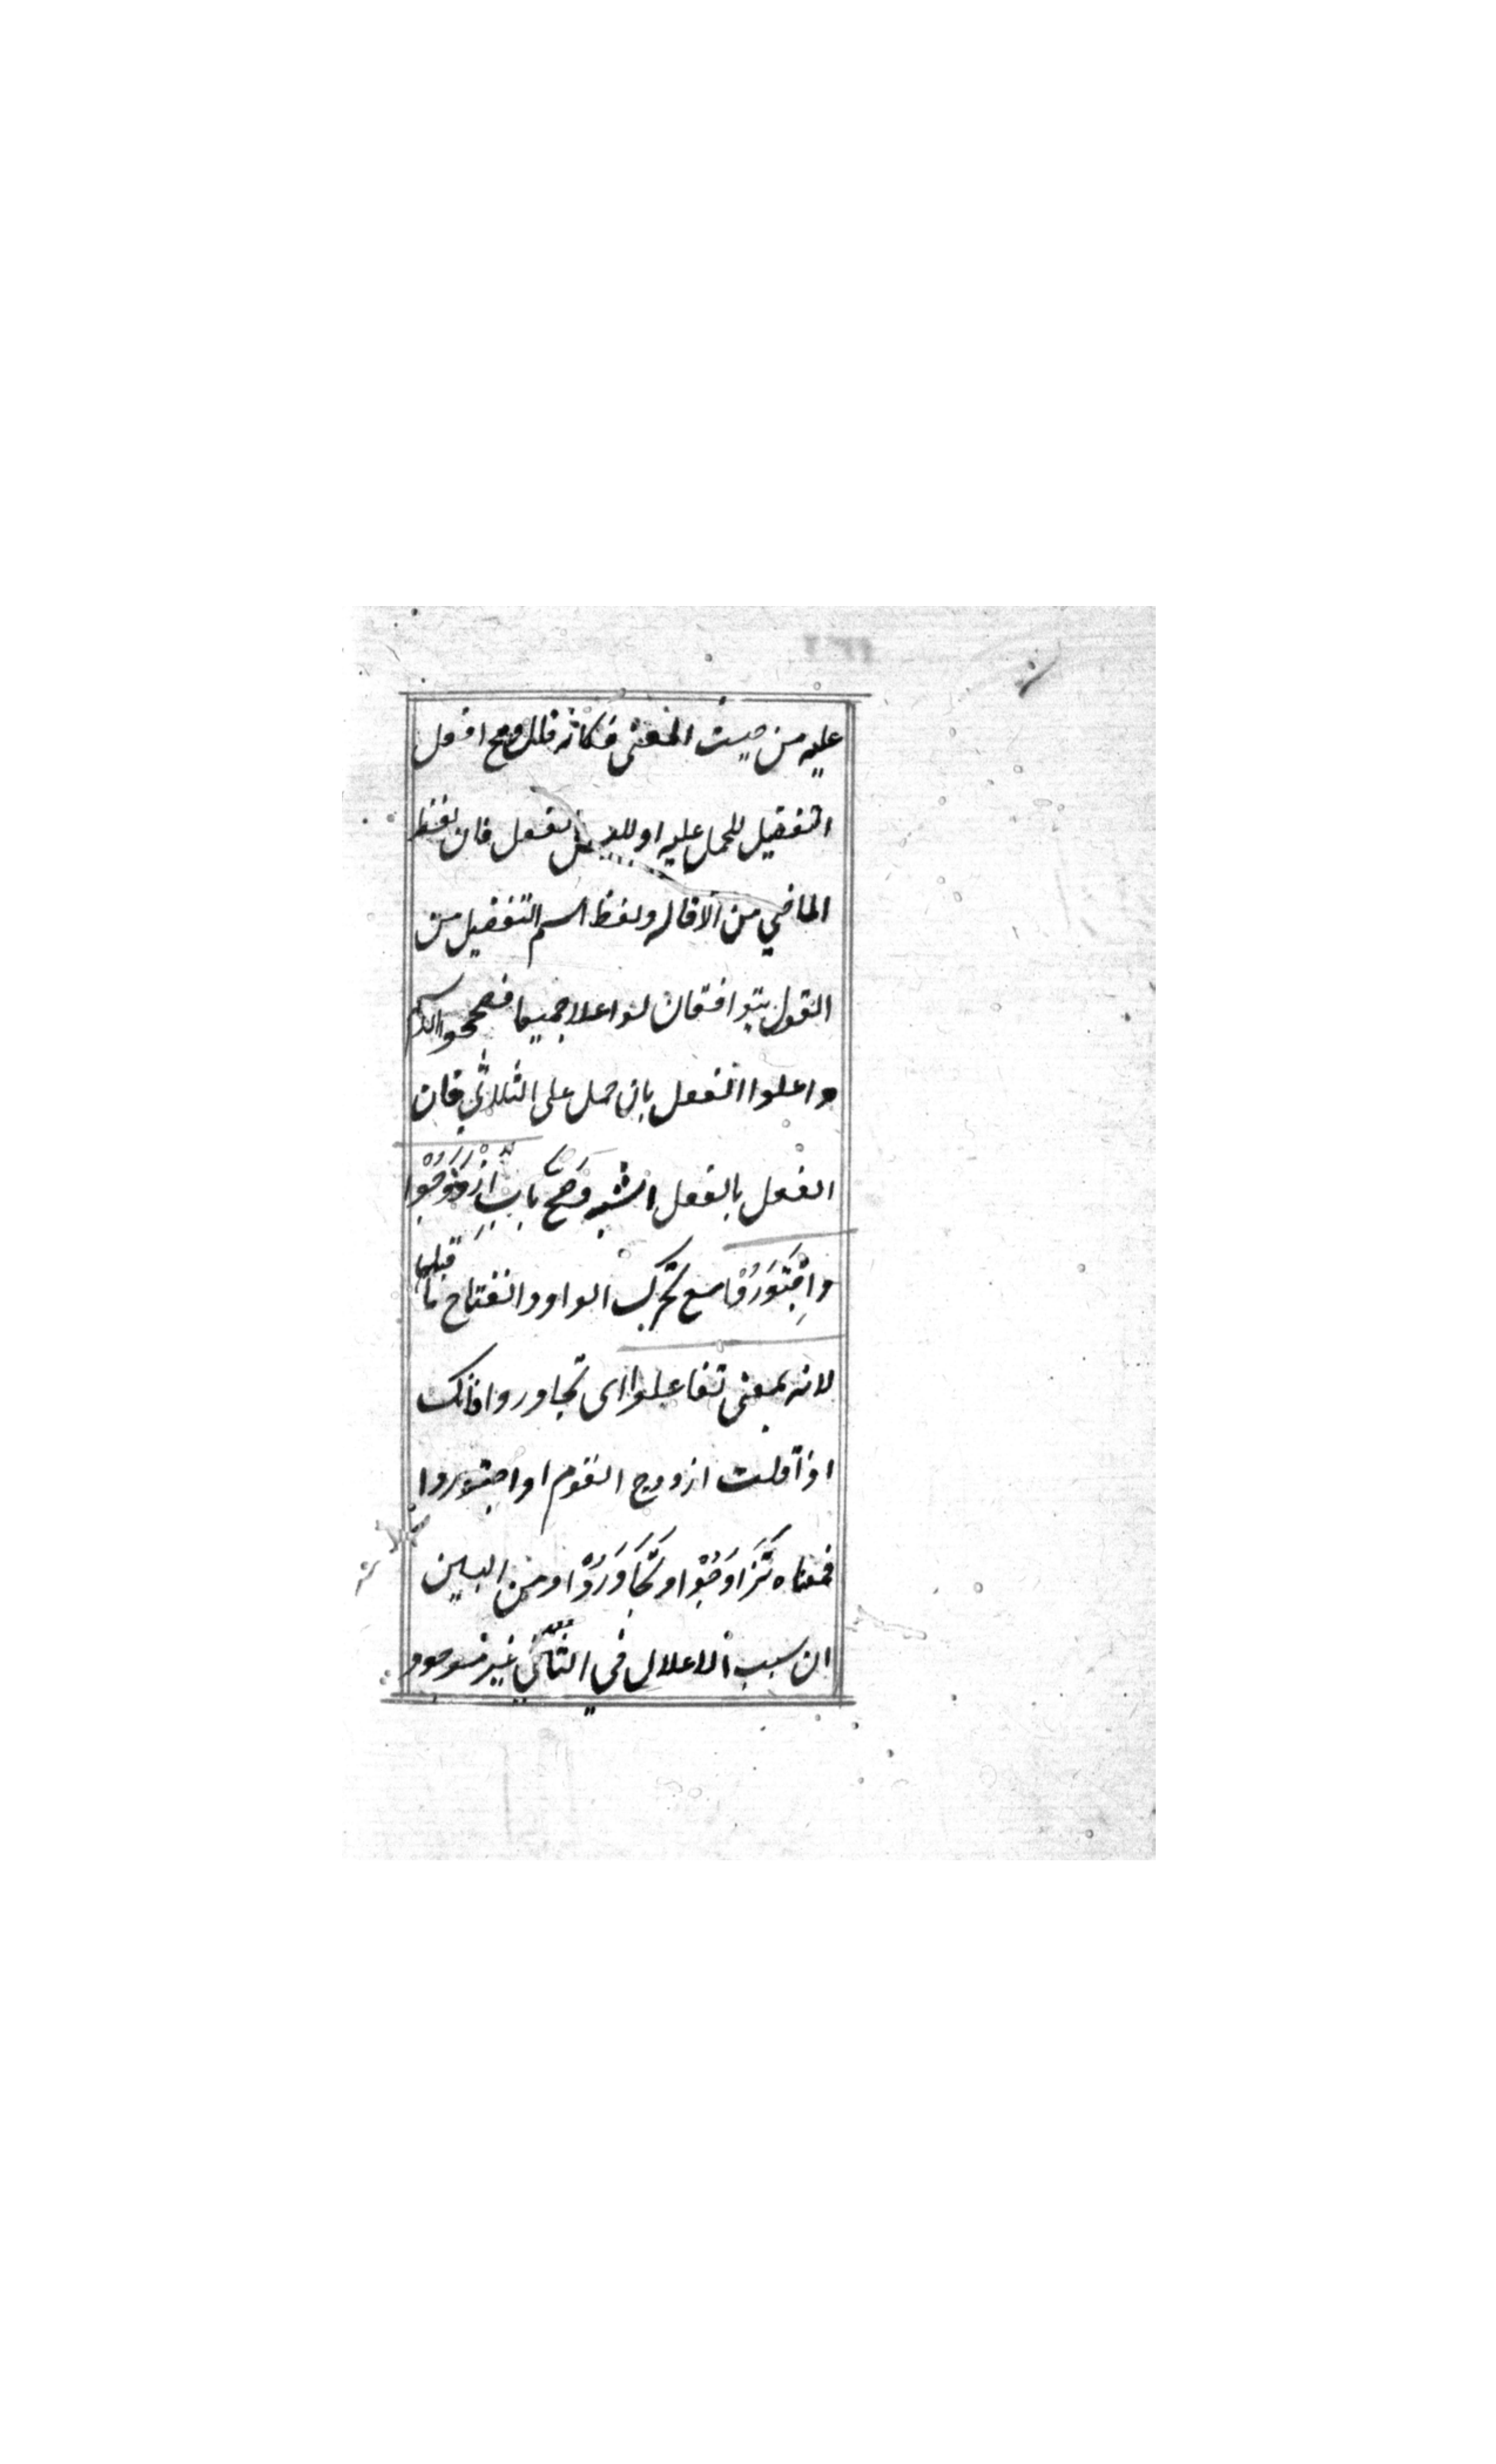 عليه من حيث المعنى فكانه قال صح افعل
التفضيل للحمل عليه او للبس بالفعل فان لفظ
الماضي من الاقالة ولفظ اسم التفضيل من
القول يتوافقان لو اعلا جميعا فصححوا الاسم
واعلوا الفعل بان حمل على الثلاثي فان
الفعل بالفعل اشبه وَصَحَّ بابُ اِزْدَوَجُوْا
وِاجْتَوَرُوْا مع تحرك الواو وانفتاح ما قبلها
لانه بمعنى تفاعلوا اى تجاوروا فانك
اذا قلت ازدوج القوم او اجتوروا
فمعناه تَزَاوَجُوْا وتَجَاوَرُوْا ومن البين
ان سبب الاعلال في الثاني غير موجود